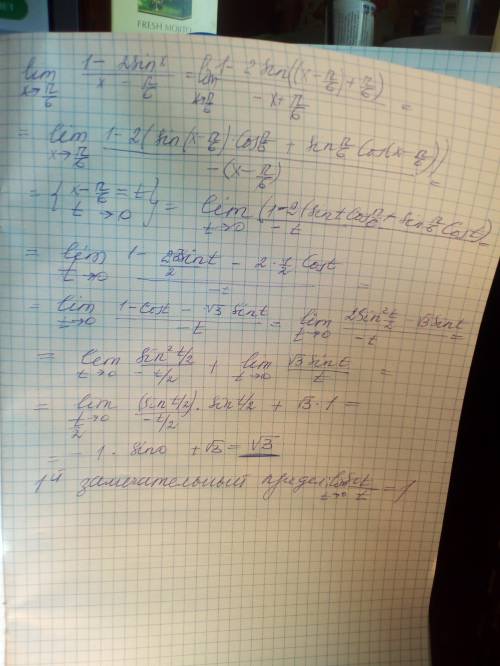 FRESH MOJITO
lim x→π/6 (1 - 2sin x)/(x - π/6) = lim x→π/6 (1 - 2 sin((x - π/6) + π/6))/(-x + π/6) =
= lim x→π/6 (1 - 2(sin(x - π/6) cos π/6 + sin π/6 cos(x - π/6)))/(-(x - π/6)) =
= {x - π/6 = t, t → 0} = lim t→0 (1 - 2(sin t cos π/6 + sin π/6 cos t))/(-t) =
= lim t→0 (1 - 2√3/2 sin t - 2 · 1/2 cos t)/(-t) =
= lim t→0 (1 - cos t - √3 sin t)/(-t) = lim t→0 (2 sin² t/2 - √3 sin t)/(-t) =
= lim t→0 (sin² t/2)/(-t/2) + lim t→0 (√3 sin t)/t =
= lim t/2→0 (sin t/2)/(-t/2) · sin t/2 + √3 · 1 =
= - 1 · sin 0 + √3 = √3
1й замечательный предел lim t→0 sin t/t = 1